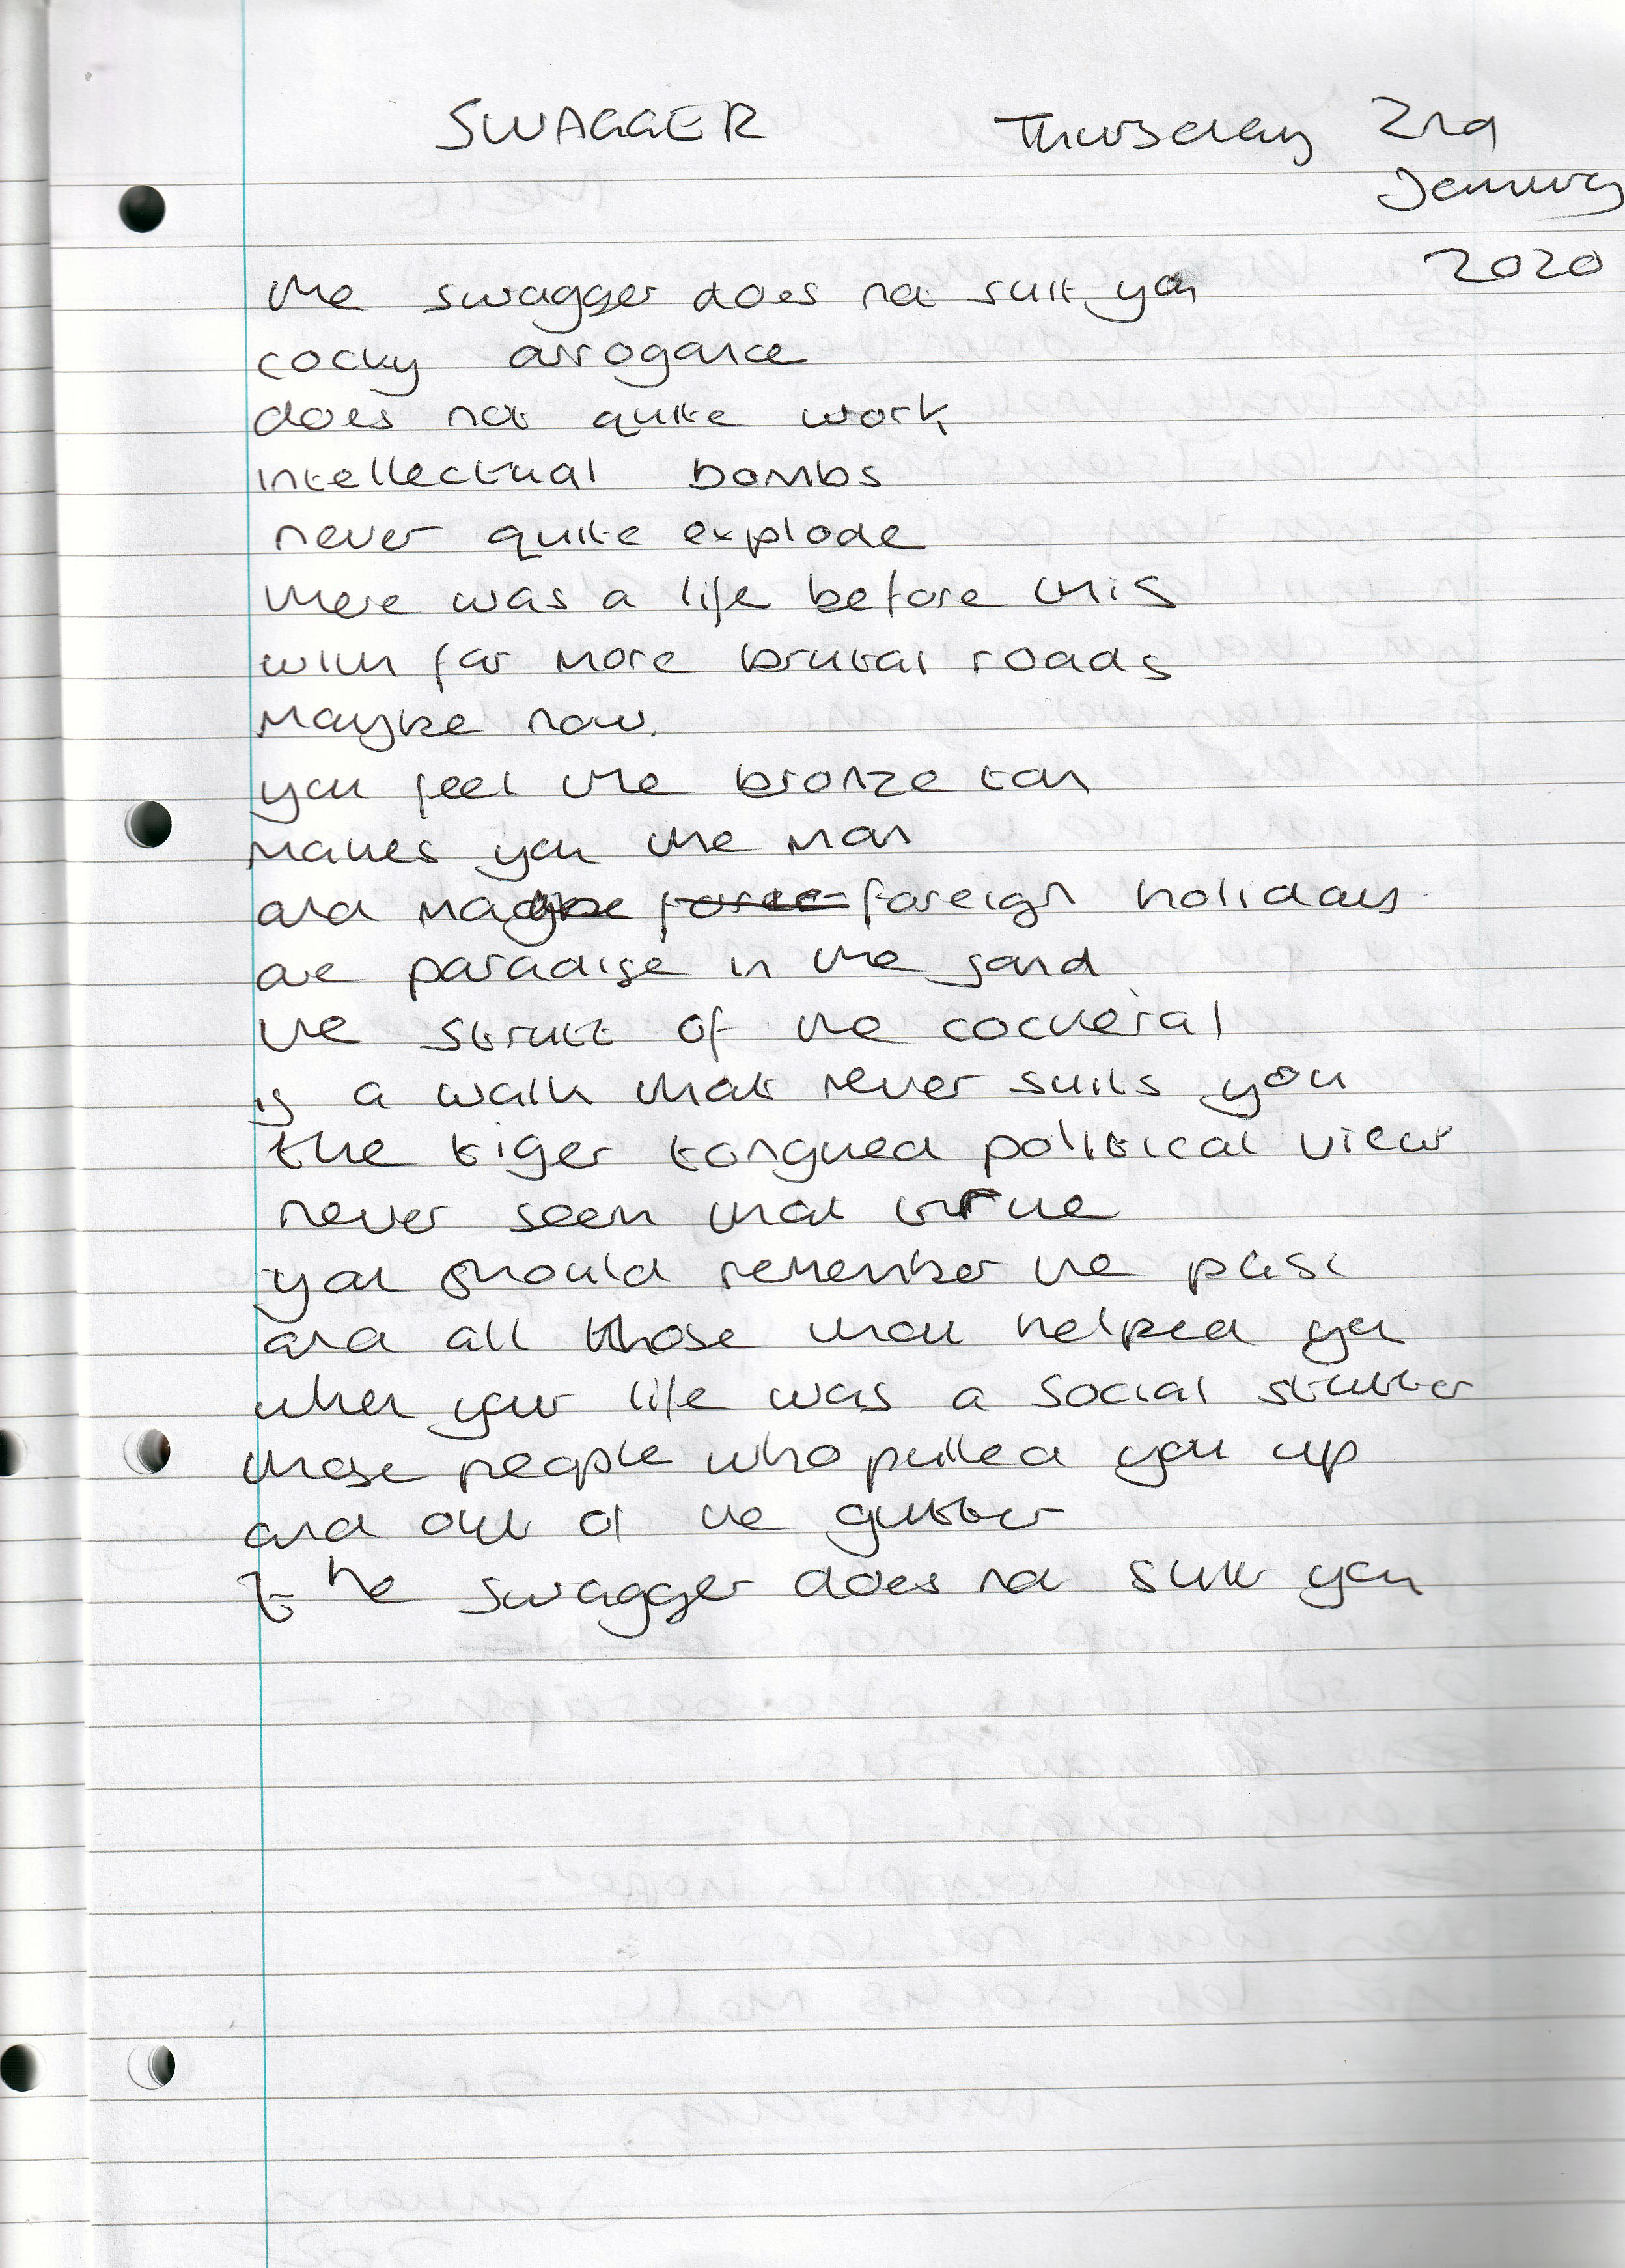 SWAGGER Thursday 2nd
January
2020
the swagger does not suit you
cocky arrogance
does not quite work
intellectual bombs
never quite explode
there was a life before this
with far more brutal roads
maybe now.
you feel the bronze tan
makes you the man
and maybe foreign holidays
are paradise in the sand
the strutt of the cockeral
is a walk that never suits you
the tiger tongued political view
never seen that true
you should remember the past
and all those that helped you
when your life was a social stutter
those people who pulled you up
and out of the gutter
the swagger does not suit you